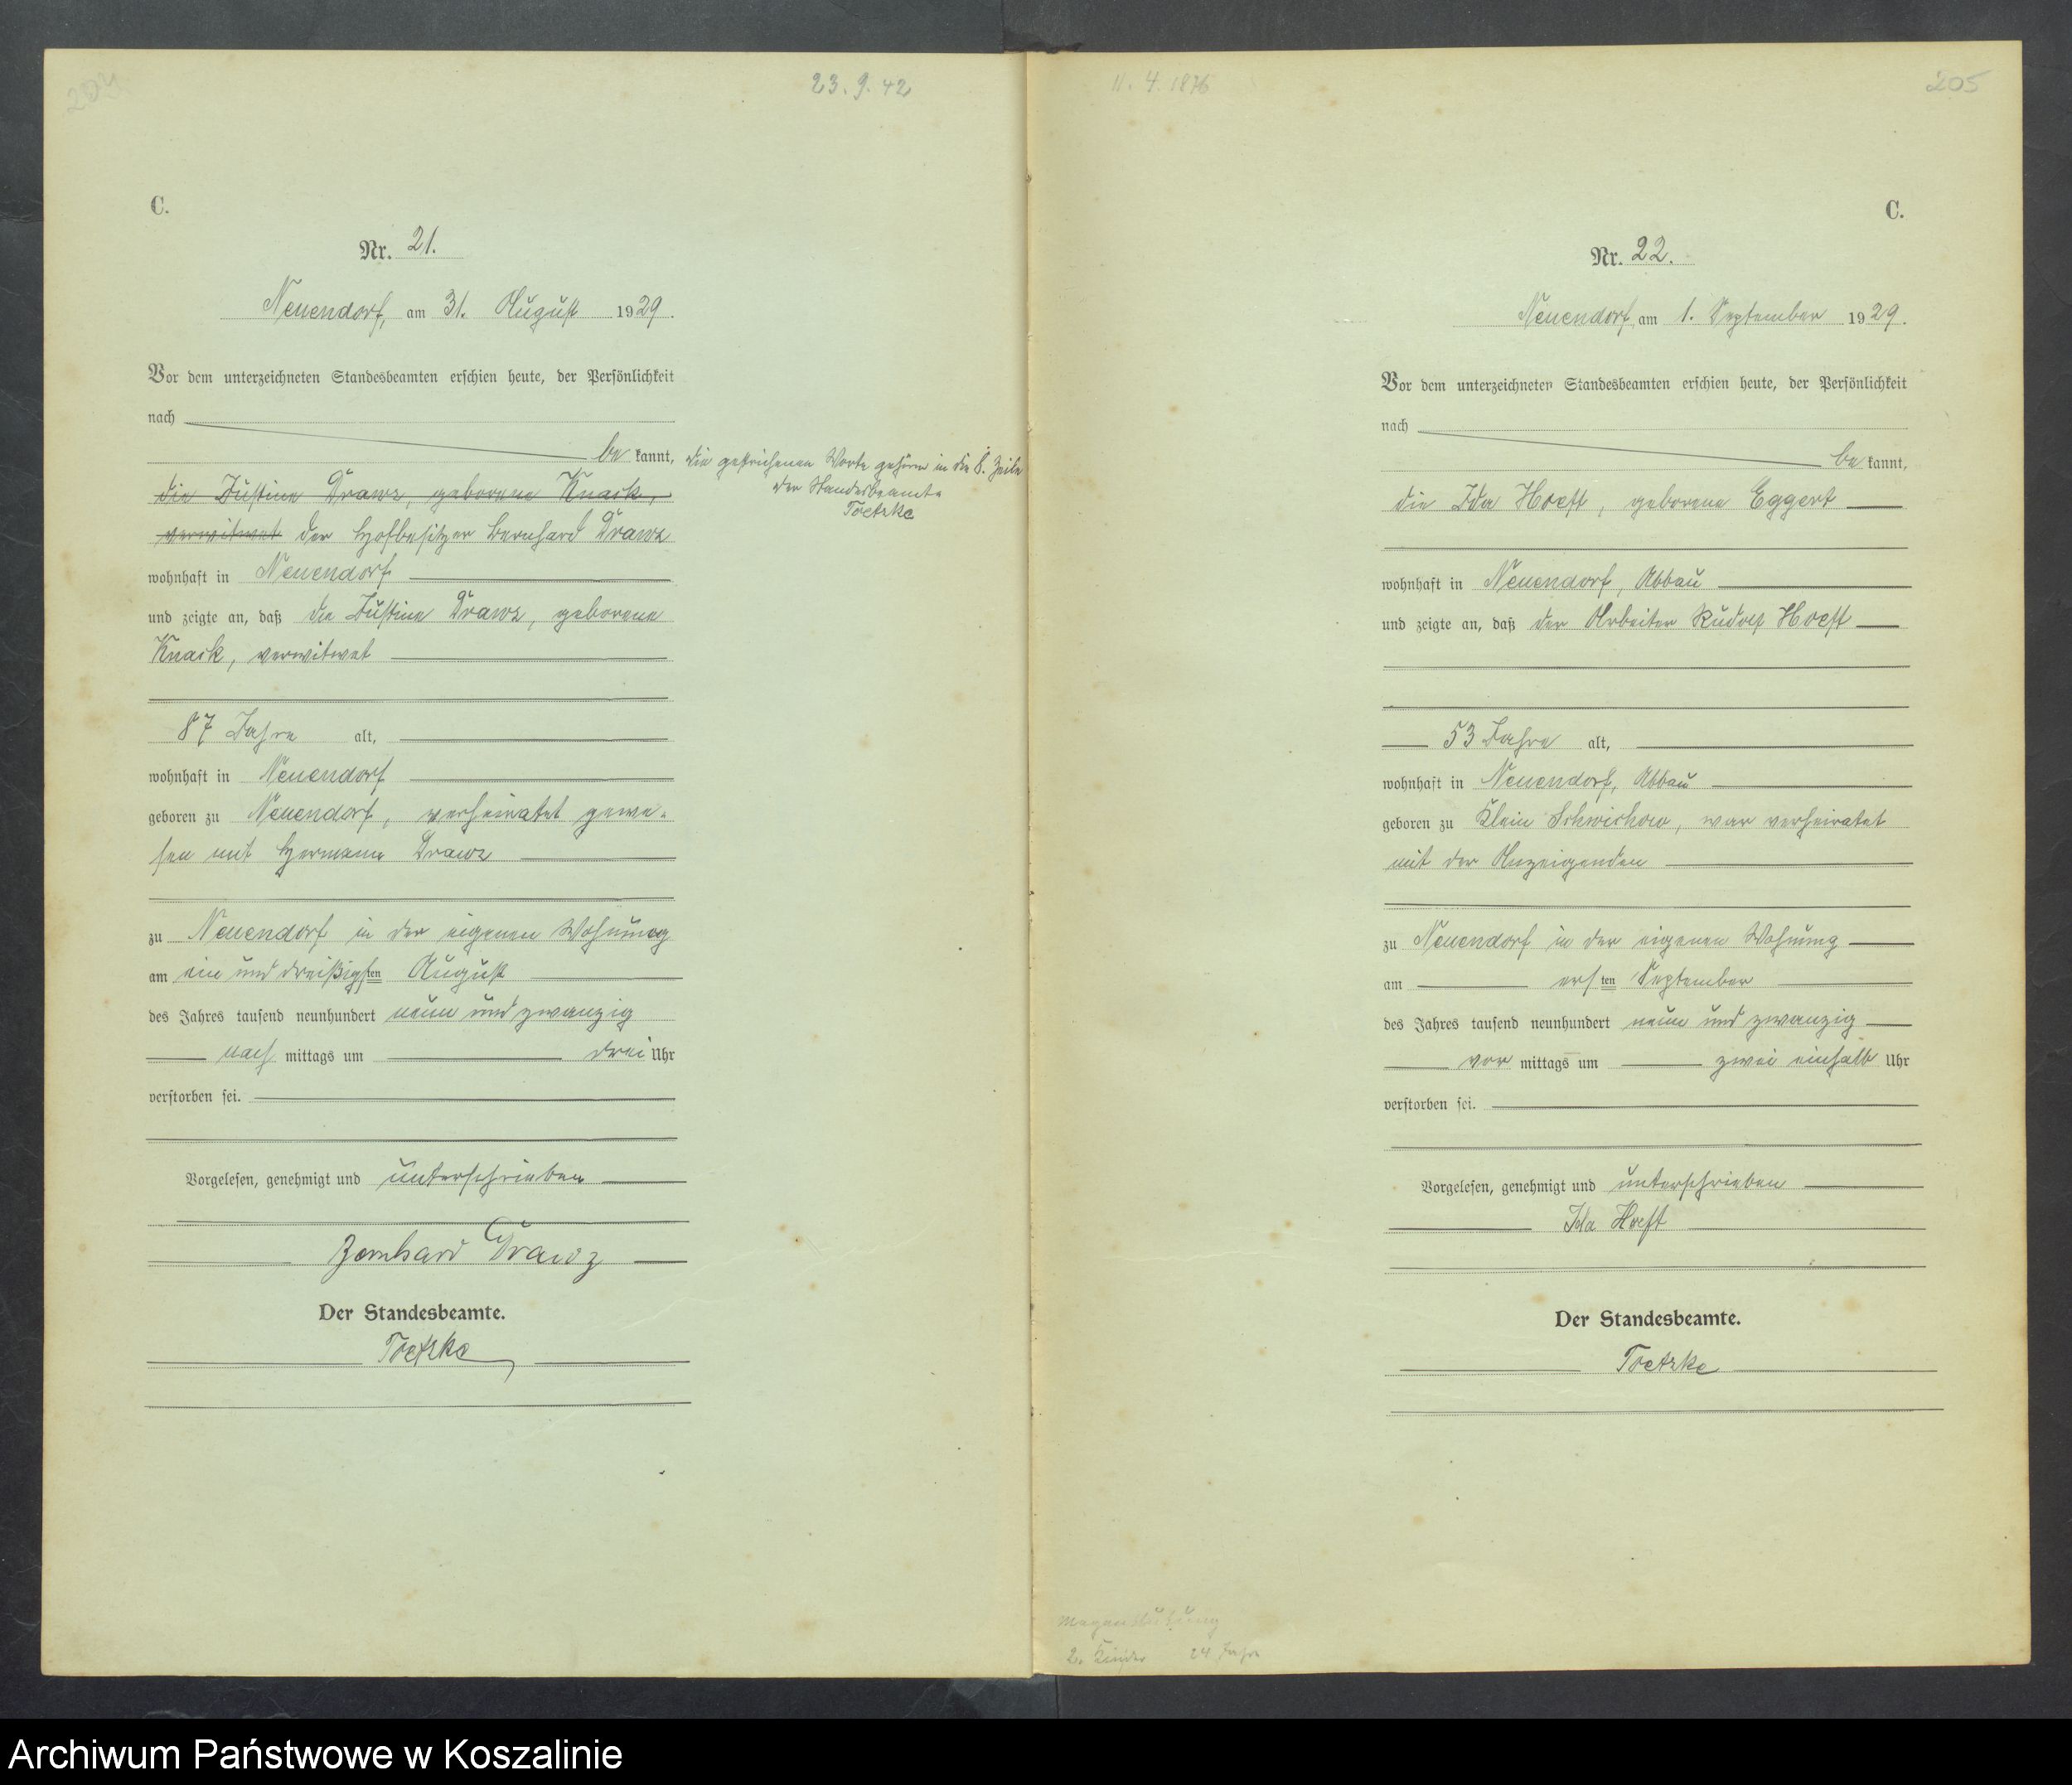 23. 9. 42
C.
Nr. 21.
Neuendorf, am 31. August 1929.
Vor dem unterzeichneten Standesbeamten erschien heute, der Persönlichkeit
nach
be kannt,
die Justine Drawz, geborene Knack,
verwitwet der Hofbesitzer Bernhard Drawz
wohnhaft in Neuendorf
und zeigte an, daß die Justine Drawz, geborene
Knack, verwitwet
87 Jahre alt,
wohnhaft in Neuendorf
geboren zu Neuendorf, verheiratet gewe-
sen mit Hermann Drawz
zu Neuendorf in der eigenen Wohnung
am ein und dreißigsten August
des Jahres tausend neunhundert neun und zwanzig
nach mittags um drei Uhr
verstorben sei.
Vorgelesen, genehmigt und unterschrieben
Bernhard Drawz
Der Standesbeamte.
Toetzke
die gestrichenen Worte gehören in die 8. Zeile
der Standesbeamte
Toetzke
11. 4. 1876
205
C.
Nr. 22.
Neuendorf am 1. September 1929.
Vor dem unterzeichneten Standesbeamten erschien heute, der Persönlichkeit
nach
be kannt,
die Ida Hoeft, geborene Eggert
wohnhaft in Neuendorf, Abbau
und zeigte an, daß der Arbeiter Rudolf Hoeft
53 Jahre alt,
wohnhaft in Neuendorf, Abbau
geboren zu Klein Schwichow, war verheiratet
mit der Anzeigenden
zu Neuendorf in der eigenen Wohnung
am ersten September
des Jahres tausend neunhundert neun und zwanzig
vor mittags um zwei einhalb Uhr
verstorben sei.
Vorgelesen, genehmigt und unterschrieben
Ida Hoeft
Der Standesbeamte.
Toetzke
2. Kinder 24 Jahre
Archiwum Państwowe w Koszalinie